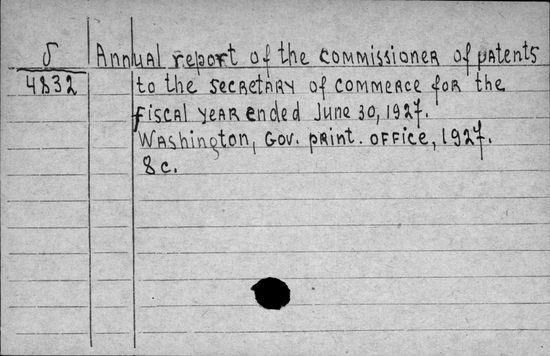 δ Annual report of the commissioner of patents
4832 to the secretary of commerce for the
fiscal year ended June 30, 1927.
Washington, Gov. print. office, 1927.
8c.